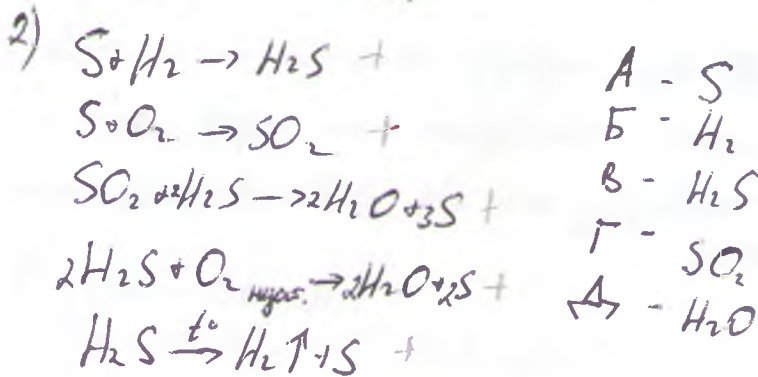 2)
S + H₂ → H₂S +
S + O₂ → SO₂ +
SO₂ + 2H₂S → 2H₂O + 3S +
2H₂S + O₂ → 2H₂O + 2S +
H₂S t° → H₂↑ + S +
А - S
Б - H₂
В - H₂S
Г - SO₂
Д - H₂O